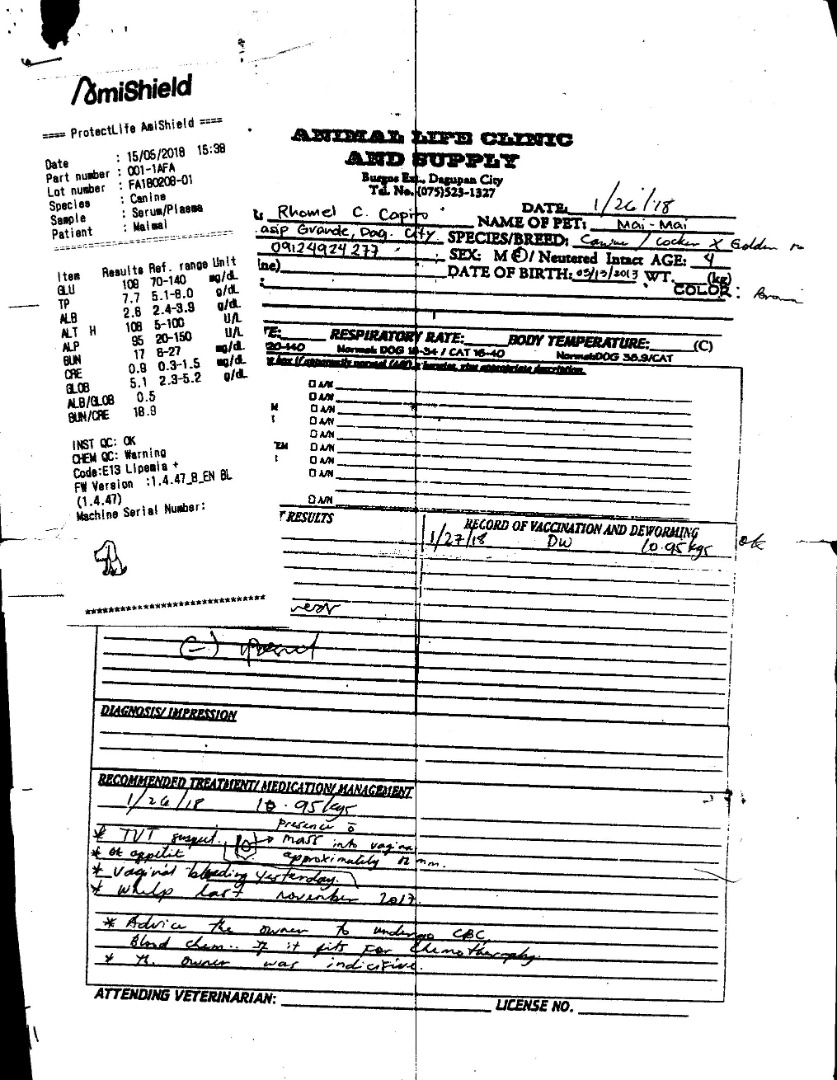 AmiShield
==== ProtectLife AmiShield ====
Date : 15/05/2018 15:38
Part number : 001-1AFA
Lot number : FA180208-01
Species : Canine
Sample : Serum/Plasma
Patient : Maimai
Item Results Ref. range Unit
GLU 109 70-140 mg/dL
TP 7.7 5.1-8.0 g/dL
ALB 2.6 2.4-3.9 g/dL
ALT H 108 5-100 U/L
ALP 95 20-150 U/L
BUN 17 6-27 mg/dL
CRE 0.9 0.3-1.5 mg/dL
GLOB 5.1 2.3-5.2 g/dL
ALB/GLOB 0.5
BUN/CRE 18.9
INST QC: OK
CHEM QC: Warning
Code:E13 Lipemia +
FW Version :1.4.47_B_EN BL
(1.4.47)
Machine Serial Number:
******************************
ANIMAL LIFE CLINIC
AND SUPPLY
Burgos Ext., Dagupan City
Tel. No. (075)523-1327
DATE: 1/26/18
Rhomel C. Capiro NAME OF PET: Mai-Mai
asip Grande, Dag. City SPECIES/BREED: Canine / Cocker X Golden
09124924277 SEX: M F / Neutered Intact AGE: 4
ne) DATE OF BIRTH: 05/15/2013 WT. (kg)
COLOR: Brown
TE: RESPIRATORY RATE: BODY TEMPERATURE: (C)
Normal: DOG 18-34 / CAT 16-40 Normal:DOG 38.9/CAT
A/N
A/N
M A/N
A/N
A/N
EM A/N
A/N
A/N
T RESULTS
RECORD OF VACCINATION AND DEWORMING
1/27/18 DW 10.95 kgs ok
(-)
DIAGNOSIS/ IMPRESSION
RECOMMENDED TREATMENT/ MEDICATION/ MANAGEMENT
1/26/18 10.95 kgs
* TVT suspect. Presence
mass into vagina
* ok appetit approximately 12 mm.
* vaginal bleeding yesterday.
* whelp last november 2017
* Advice the owner to undergo CBC,
Blood chem. if it fits for chemotheraphy
* th. owner was indicisive.
ATTENDING VETERINARIAN:
LICENSE NO.